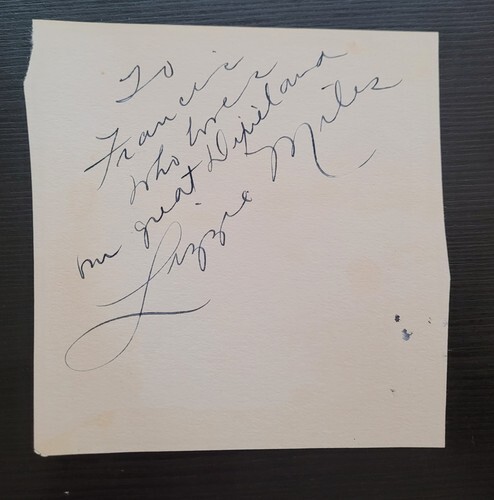 To
Francis
who loves
our great Dixieland
Lizzie Miles